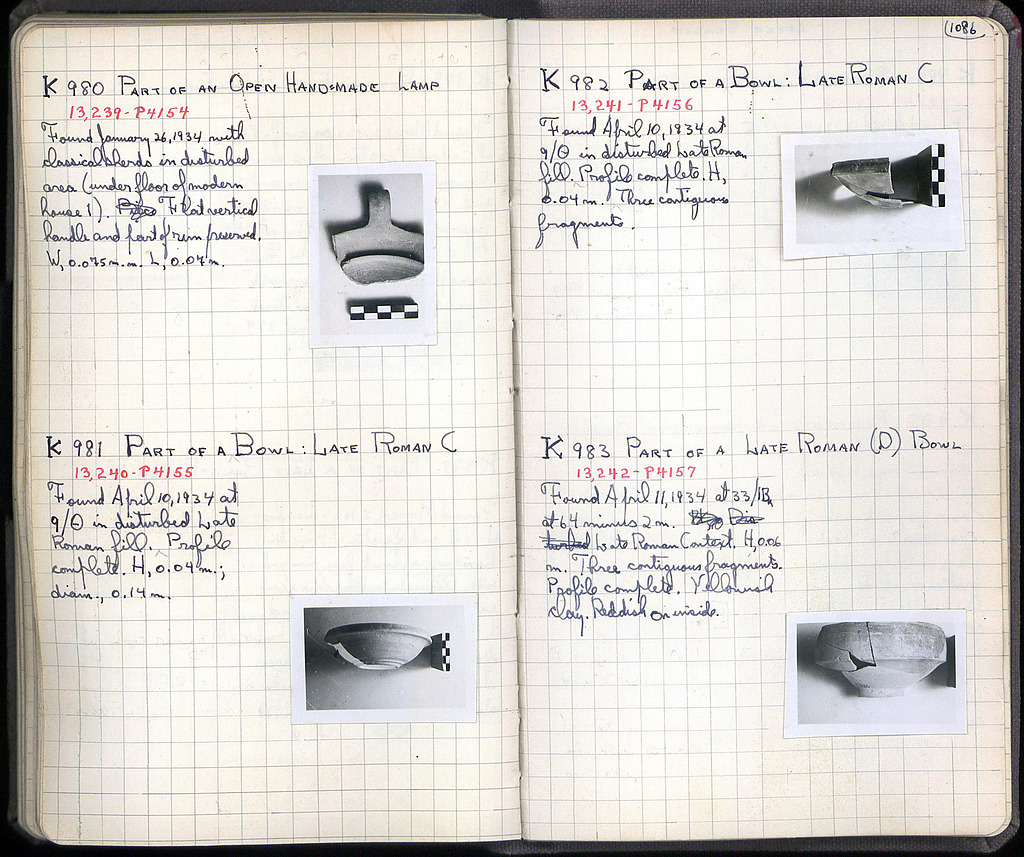 K 980 PART OF AN OPEN HAND-MADE LAMP
13,239-P4154
Found January 26, 1934 with
classical sherds in disturbed
area (under floor of modern
house 1). Flat vertical
handle and part of rim preserved.
W, 0.075m.m. L, 0.07m.
K 981 PART OF A BOWL: LATE ROMAN C
13,240-P4155
Found April 10, 1934 at
9/Θ in disturbed Late
Roman fill. Profile
complete. H, 0.04m.;
diam., 0.14m.
1086
K 982 PART OF A BOWL: LATE ROMAN C
13,241-P4156
Found April 10, 1934 at
9/Θ in disturbed Late Roman
fill. Profile complete. H,
0.04m. Three contiguous
fragments.
K 983 PART OF A LATE ROMAN (D) BOWL
13,242-P4157
Found April 11, 1934 at 33/
at 64 minus 2m. Dis
turbed Late Roman Context. H, 0.06
m. Three contiguous fragments.
Profile complete. Yellowish
clay. Reddish on inside.